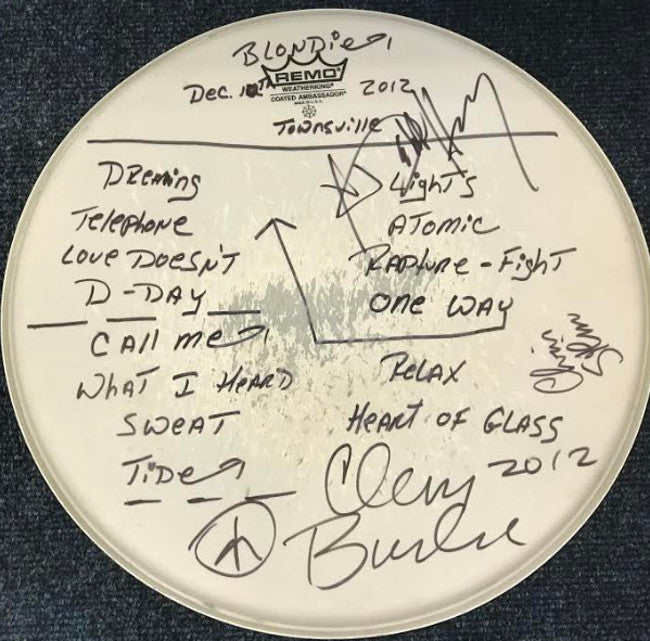 BLONDIE
REMO
WEATHERKING
COATED AMBASSADOR
MADE IN U.S.A.
Dec. 10TH 2012
Townsville
Dreaming
Telephone
Love Doesn't
D-DAY
CALL me
WHAT I HEARD
SWEAT
TIDE
LIGHTS
ATOMIC
RAPTURE - FIGHT
ONE WAY
RELAX
HEART OF GLASS
Clem 2012
Burke